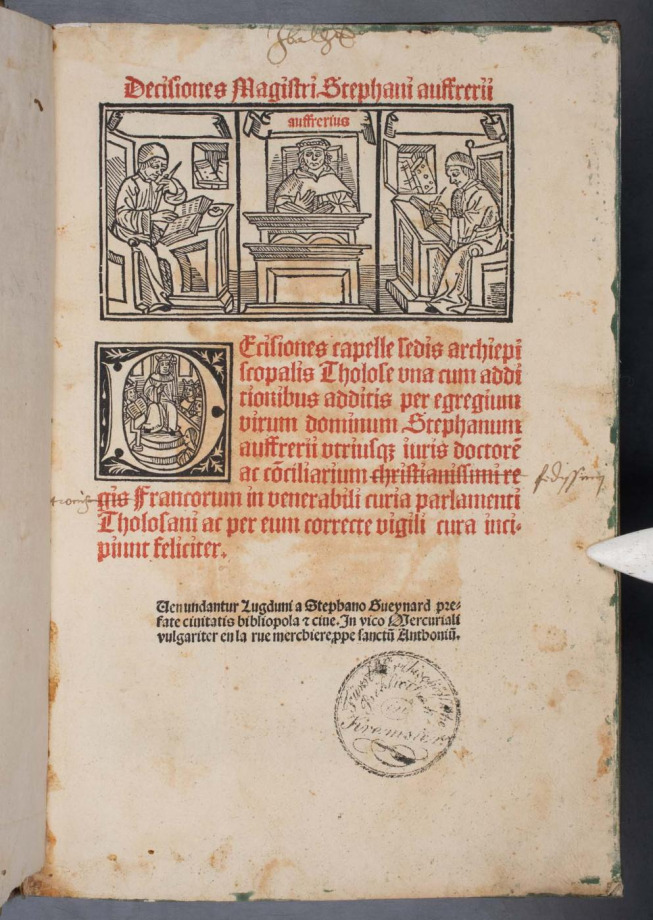 Decisiones Magistri Stephani auffrerii
auffrerius
DEcisiones capelle sedis archiepi
scopalis Tholose vna cum addi
tionibus additis per egregium
virum dominum Stephanum
auffrerii vtriusqꝫ iuris doctorē
ac cōciliarium christianissimi re
gis Francorum in venerabili curia parlamenti
Tholosani ac per eum correcte vigili cura inci-
piunt feliciter.
Uenundantur Lugduni a Stephano Gueynard pre-
fate ciuitatis bibliopola ⁊ ciue. In vico Mercuriali
vulgariter en la rue merchiere ꝓpe sanctū Anthoniū.
Fürst Erzbischöfliche
Bibliothek
in
Kremsier